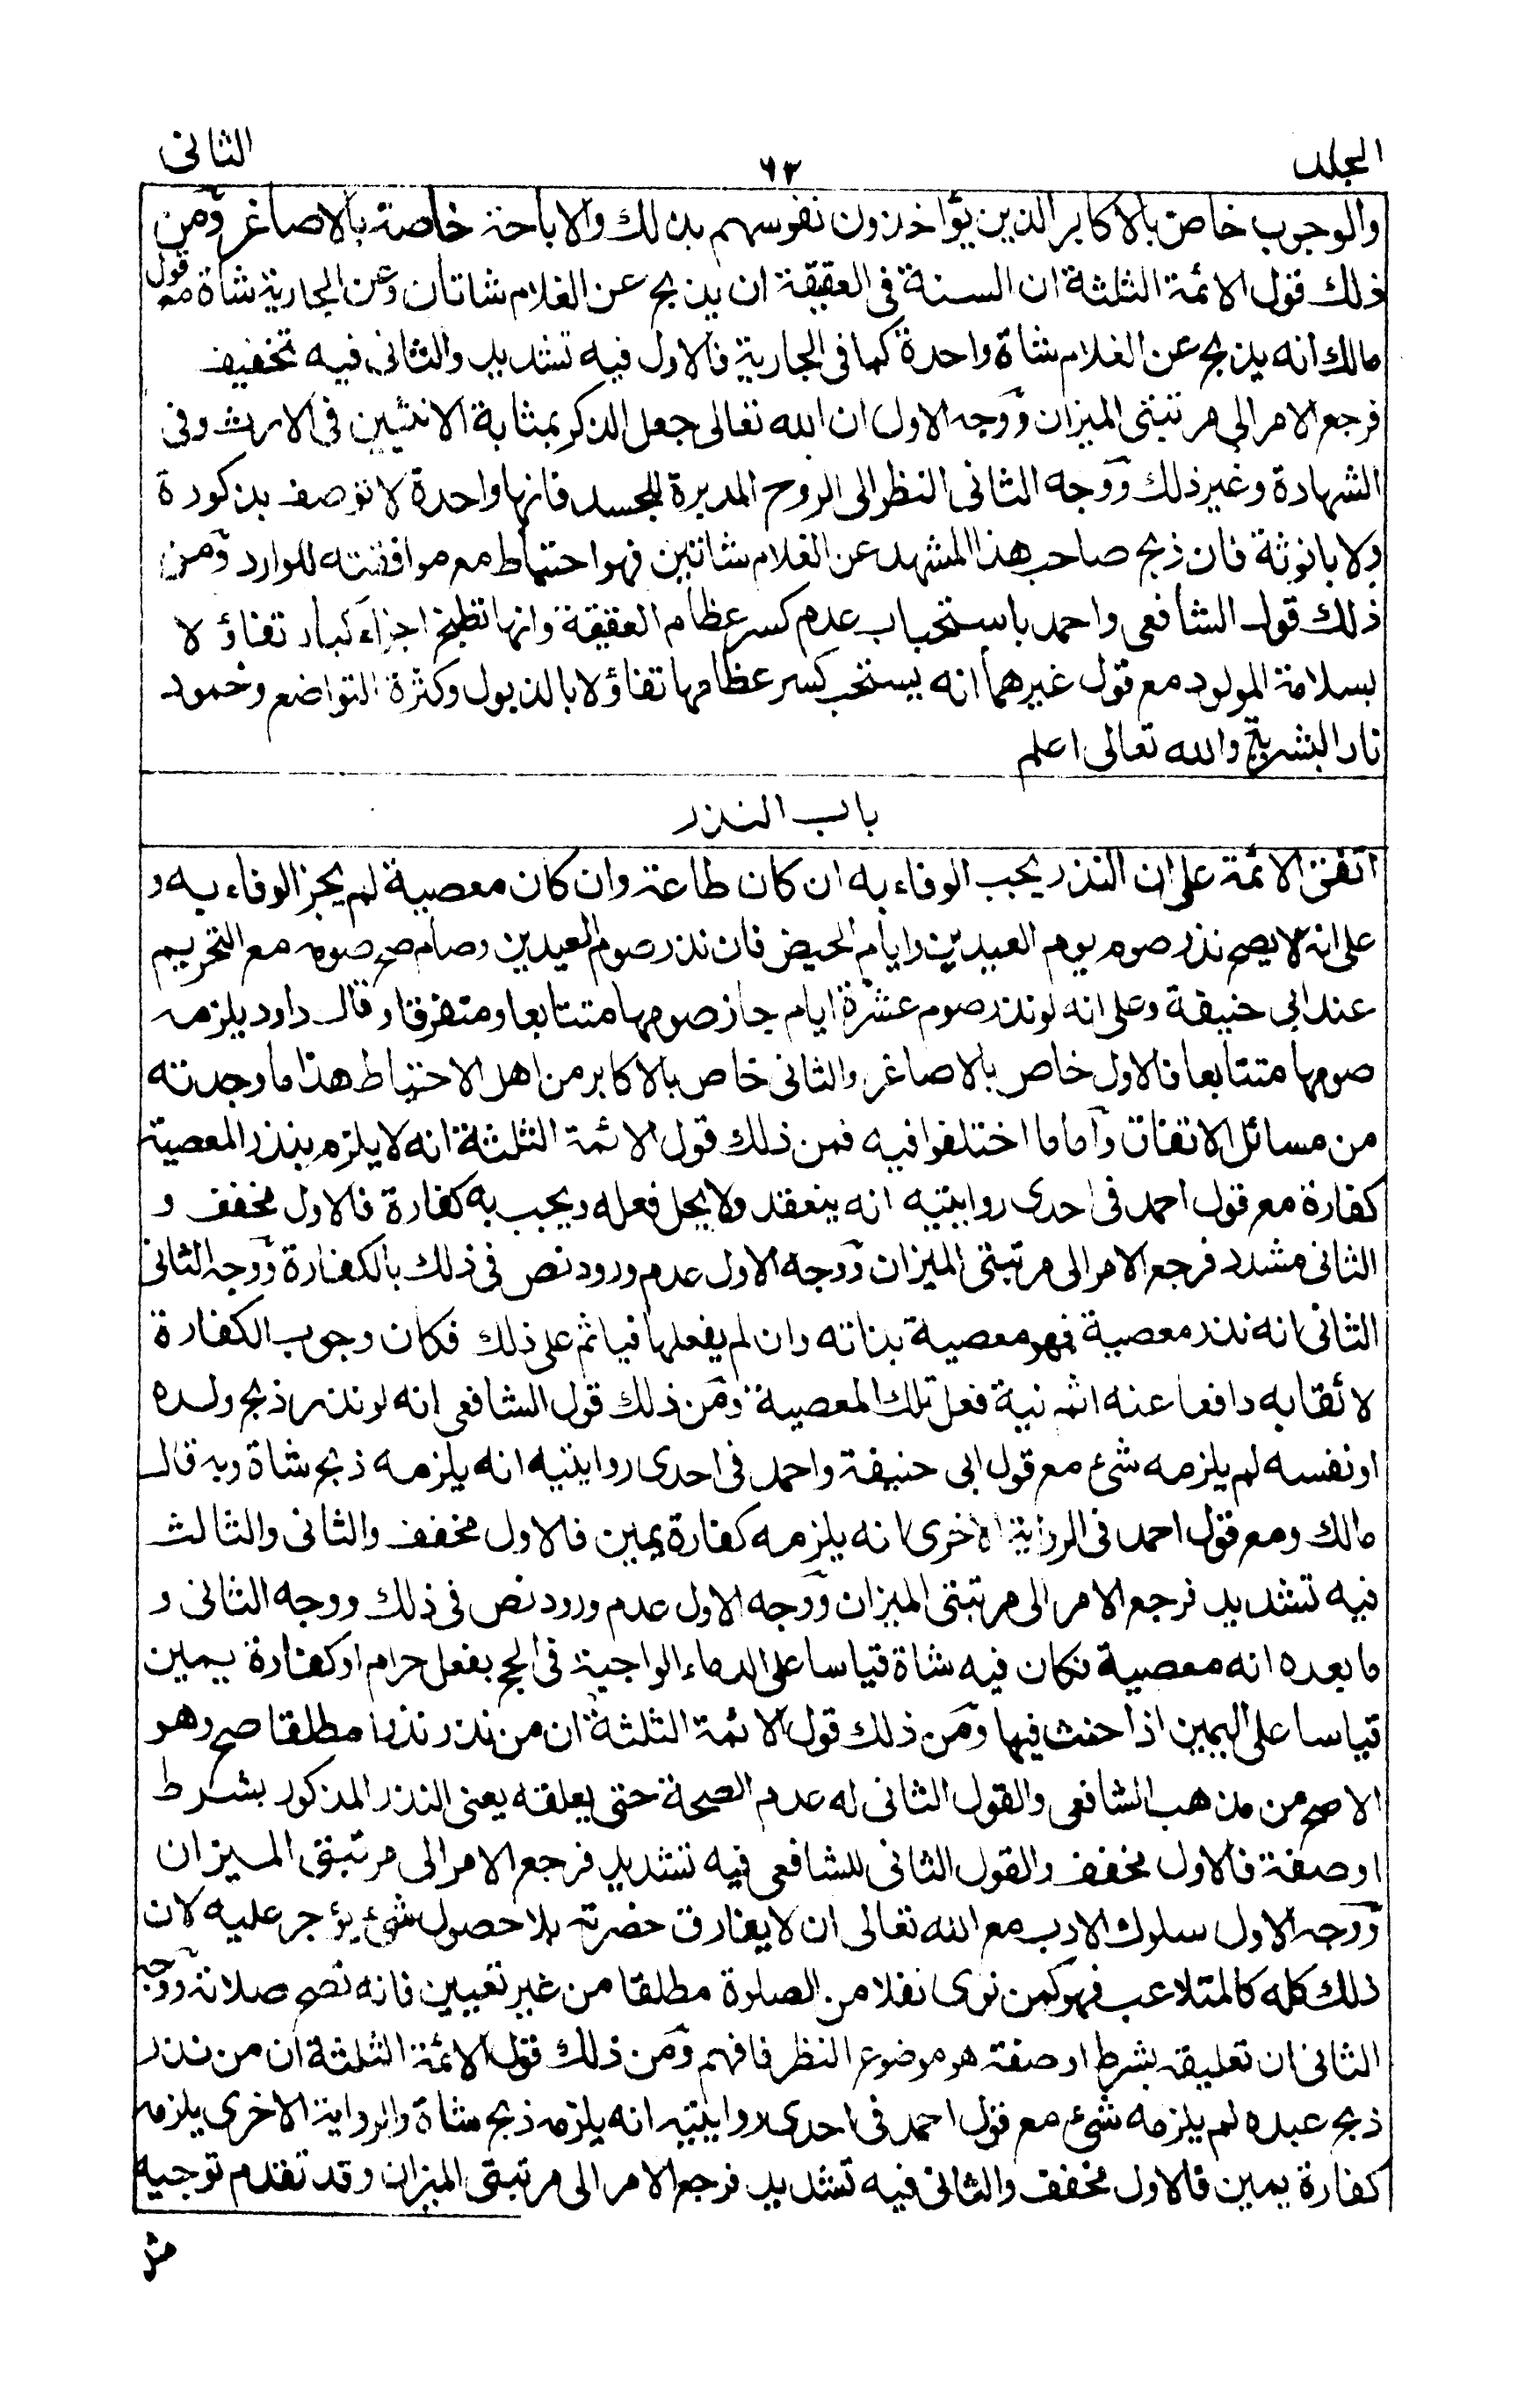 المجلد ٦٣ الثانى
والوجوب خاص بالاكابر الذين يؤاخذون نفوسهم بذلك والاباحة خاصة بالاصاغر ومن
ذلك قول الائمة الثلثة ان السنة فى العقيقة ان يذبح عن الغلام شاتان وعن الجارية شاة مع قول
مالك انه يذبح عن الغلام شاة واحدة كما فى الجارية فالاول فيه تشديد والثانى فيه تخفيف
فرجع الامر الى مرتبتى الميزان ووجه الاول ان الله تعالى جعل الذكر بمثابة الانثيين فى الارث وفى
الشهادة وغير ذلك ووجه الثانى النظر الى الروح المدبرة للجسد فانها واحدة لا توصف بذكورة
ولا بانوثة فان ذبح صاحب هذا المشهد عن الغلام شاتين فهو احتياط مع موافقته للوارد ومن
ذلك قول الشافعى واحمد باستحباب عدم كسر عظام العقيقة وانها تطبخ اجزاء كبار تفاؤلا
بسلامة المولود مع قول غيرهما انه يستحب كسر عظامها تفاؤلا بالذبول وكثرة التواضع وخمود
نار البشرية والله تعالى اعلم
باب النذر
اتفق الائمة على ان النذر يجب الوفاء به ان كان طاعة وان كان معصية لم يجز الوفاء به و
على انه لا يصح نذر صوم يوم العيدين وايام الحيض فان نذر صوم العيدين وصام صح صومه مع التحريم
عند ابى حنيفة وعلى انه لو نذر صوم عشرة ايام جاز صومها متتابعا ومتفرقا وقال داود يلزمه
صومها متتابعا فالاول خاص بالاصاغر والثانى خاص بالاكابر من اهل الاحتياط هذا ما وجدته
من مسائل الاتفاق واما ما اختلفوا فيه فمن ذلك قول الائمة الثلثة انه لا يلزم بنذر المعصية
كفارة مع قول احمد فى احدى روايتيه انه ينعقد ولا يحل فعله ويجب به كفارة فالاول مخفف و
الثانى مشدد فرجع الامر الى مرتبتى الميزان ووجه الاول عدم ورود نص فى ذلك بالكفارة ووجه الثانى
الثانى انه نذر معصية فهو معصية بذاته وان لم يفعلها فياثم على ذلك فكان وجوب الكفارة
لائقا به دافعا عنه اثم نية فعل تلك المعصية ومن ذلك قول الشافعى انه لو نذر ذبح ولده
او نفسه لم يلزمه شئ مع قول ابى حنيفة واحمد فى احدى روايتيه انه يلزمه ذبح شاة وبه قال
مالك ومع قول احمد فى الرواية الاخرى انه يلزمه كفارة يمين فالاول مخفف والثانى والثالث
فيه تشديد فرجع الامر الى مرتبتى الميزان ووجه الاول عدم ورود نص فى ذلك ووجه الثانى و
ما بعده انه معصية فكان فيه شاة قياسا على الدماء الواجبة فى الحج بفعل حرام او كفارة يمين
قياسا على اليمين اذا حنث فيها ومن ذلك قول الائمة الثلثة ان من نذر نذرا مطلقا صح وهو
الاصح من مذهب الشافعى والقول الثانى له عدم الصحة حتى يعلقه يعنى النذر المذكور بشرط
او صفة فالاول مخفف والقول الثانى للشافعى فيه تشديد فرجع الامر الى مرتبتى الميزان
ووجه الاول سلوك الادب مع الله تعالى ان لا يفارق حضرته بلا حصول شئ يؤجر عليه لان
ذلك كله كالمتلاعب فهو كمن نوى نفلا من الصلوة مطلقا من غير تعيين فانه تصح صلاته ووجه
الثانى ان تعليقه بشرط او صفة هو موضوع النظر فافهم ومن ذلك قول الائمة الثلثة ان من نذر
ذبح عبده لم يلزمه شئ مع قول احمد فى احدى روايتيه انه يلزمه ذبح شاة والرواية الاخرى يلزمه
كفارة يمين فالاول مخفف والثانى فيه تشديد فرجع الامر الى مرتبتى الميزان وقد تقدم توجيه
مثل